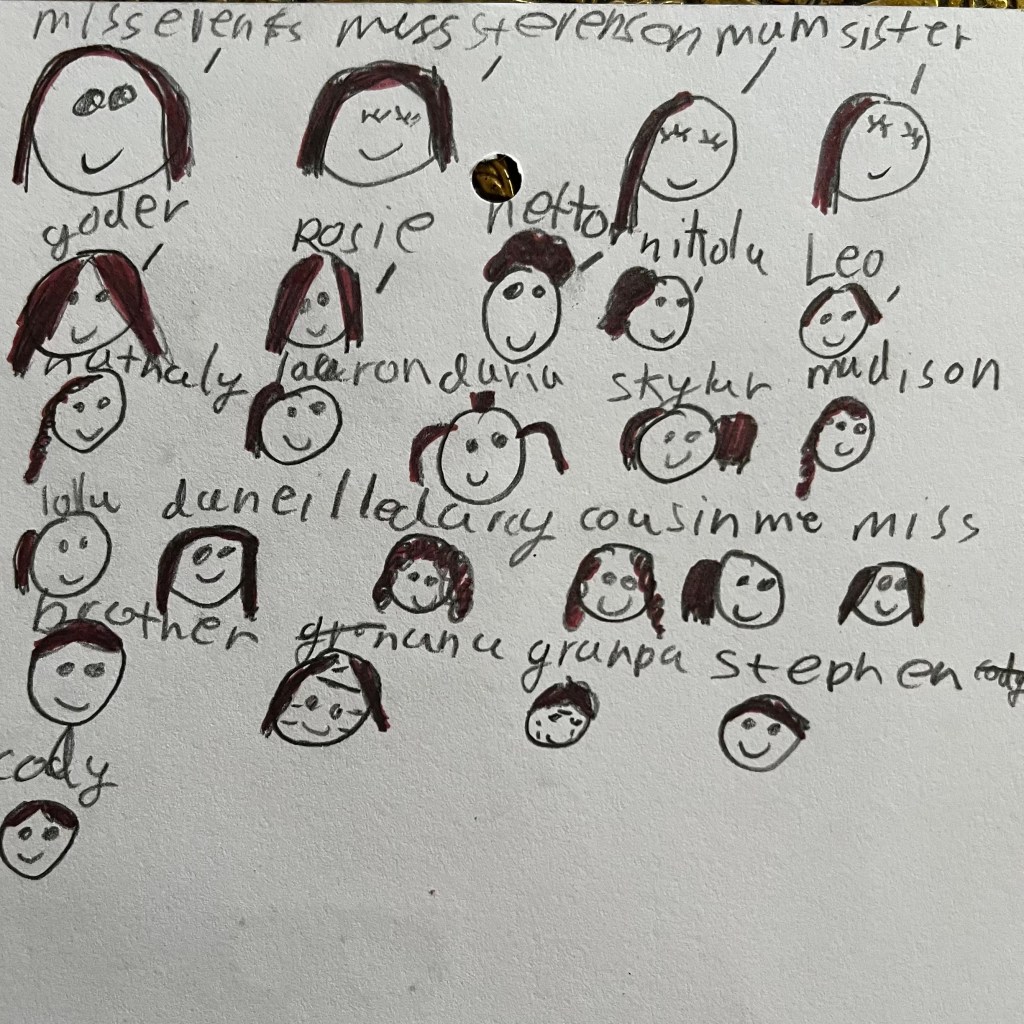 miss events miss sterenson mum sister
goder Rosie hettor nikola Leo
nathaly laaron daria skylar madison
lolla daneille darcy cousin me miss
brother granana granpa stephen cody
cody